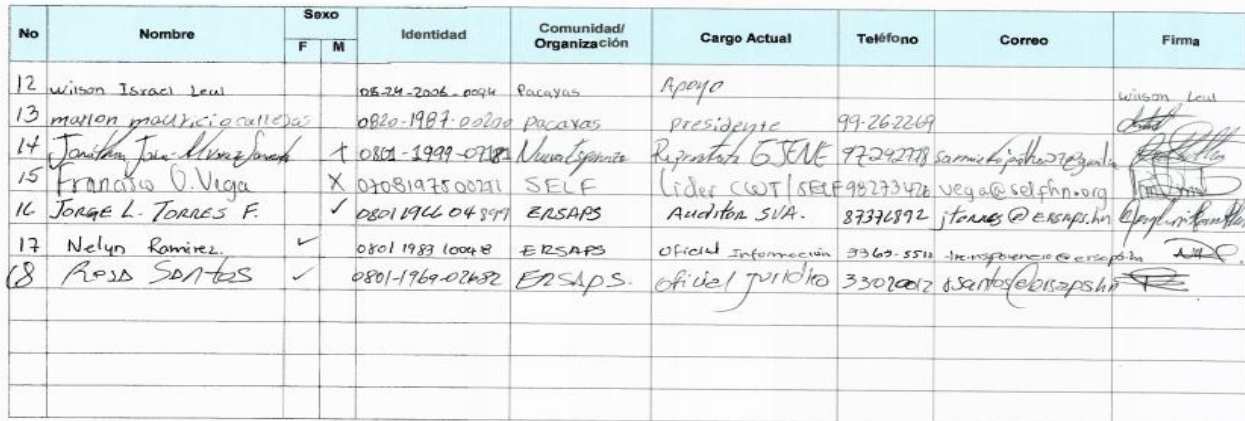 No Nombre Sexo F M Identidad Comunidad/ Organización Cargo Actual Teléfono Correo Firma
12 wilson Israel Leal 0824-2006-0094 Pacayas Apoyo wilson Leal
13 marlon mauricio callejas 0820-1987-00200 pacayas presidente 99-262269
14 X 0801-1999-07181 Nueva Esperanza 97292778
15 Francisco O. Vega X 0708197500291 SELF Líder CWT/SELF 98273426 vega@selfhn.org
16 JORGE L. TORRES F. ✓ 0801 1966 04899 ERSAPS Auditor SVA. 87376892 jtorres@ersaps.hn
17 Nelyn Ramirez. ✓ 0801 1983 10048 ERSAPS Oficial Información 3369-5512 transparencia@ersaps.hn
18 Rosa Santos ✓ 0801-1969-02682 ERSAPS. oficial jurídico 33020012 rsantos@ersaps.hn